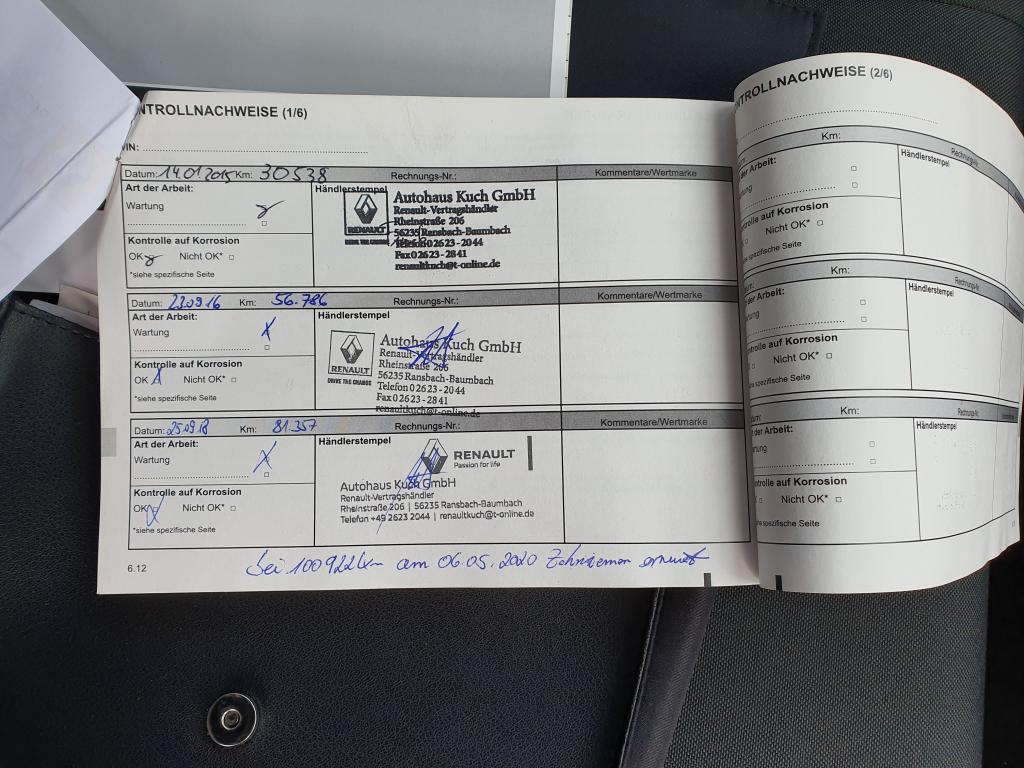 NTROLLNACHWEISE (1/6)
IN: ....................
Datum: 14.01.2015 Km: 30538 Rechnungs-Nr.: Kommentare/Wertmarke
Art der Arbeit: Händlerstempel
Wartung
Kontrolle auf Korrosion
OK Nicht OK* □
*siehe spezifische Seite
RENAULT
DRIVE THE CHANGE
Autohaus Kuch GmbH
Renault-Vertragshändler
Rheinstraße 206
56235 Ransbach-Baumbach
Telefon 0 26 23 - 20 44
Fax 0 26 23 - 28 41
renaultkuch@t-online.de
Datum: 22.09.16 Km: 56.786 Rechnungs-Nr.: Kommentare/Wertmarke
Art der Arbeit: Händlerstempel
Wartung
Kontrolle auf Korrosion
OK Nicht OK* □
*siehe spezifische Seite
RENAULT
DRIVE THE CHANGE
Autohaus Kuch GmbH
Renault-Vertragshändler
Rheinstraße 206
56235 Ransbach-Baumbach
Telefon 0 26 23 - 20 44
Fax 0 26 23 - 28 41
renaultkuch@t-online.de
Datum: 25.09.18 Km: 81.357 Rechnungs-Nr.: Kommentare/Wertmarke
Art der Arbeit: Händlerstempel
Wartung
Kontrolle auf Korrosion
OK Nicht OK* □
*siehe spezifische Seite
RENAULT
Passion for life
Autohaus Kuch GmbH
Renault-Vertragshändler
Rheinstraße 206 | 56235 Ransbach-Baumbach
Telefon +49 2623 2044 | renaultkuch@t-online.de
6.12
bei 100922km am 06.05.2020 Zahnriemen erneuert
NTROLLNACHWEISE (2/6)
Km: Rechnungs-Nr.
der Arbeit: Händlerstempel
artung
ntrolle auf Korrosion
Nicht OK* □
ehe spezifische Seite
Km: Rechnungs-Nr.
der Arbeit: Händlerstempel
artung
ntrolle auf Korrosion
Nicht OK* □
he spezifische Seite
tum: Km: Rechnungs-Nr.
der Arbeit: Händlerstempel
rtung
ntrolle auf Korrosion
Nicht OK* □
he spezifische Seite